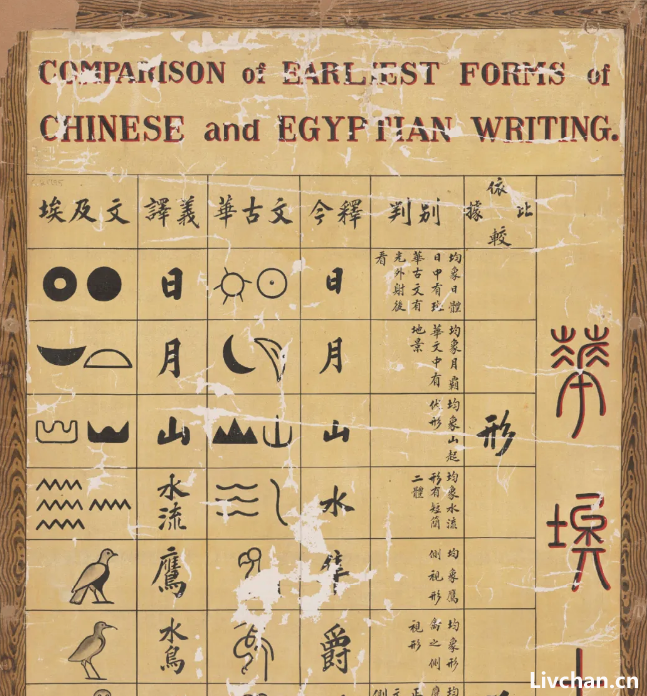 COMPARISON of EARLIEST FORMS of
CHINESE and EGYPTIAN WRITING.
埃及文 譯義 華古文 今釋 判別 依據比較
日 日 均象日體日中有
華古文有
光外射後
看
月 月 均象月霸
華文中有
地景
山 山 均象山起
伏形
形
水流 水 均象水流
形有短簡
二體
鷹 均象鷹
側視形
水鳥 爵 均象形
鳥之側
視形
華
埃
Livchan.cn